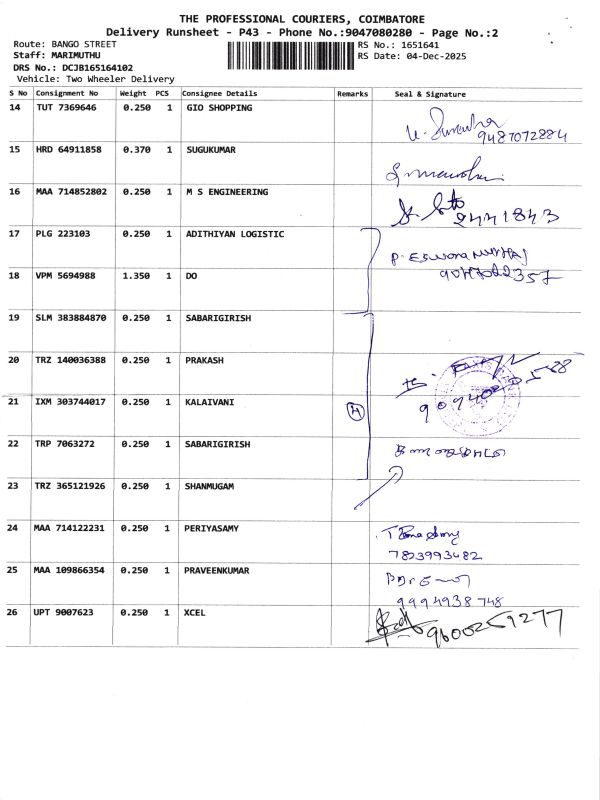 THE PROFESSIONAL COURIERS, COIMBATORE
Delivery Runsheet - P43 - Phone No.:9047080280 - Page No.:2
Route: BANGO STREET RS No.: 1651641
Staff: MARIMUTHU RS Date: 04-Dec-2025
DRS No.: DCJB165164102
Vehicle: Two Wheeler Delivery
S No Consignment No Weight PCS Consignee Details Remarks Seal & Signature
14 TUT 7369646 0.250 1 GIO SHOPPING
9487072884
15 HRD 64911858 0.370 1 SUGUKUMAR
16 MAA 714852802 0.250 1 M S ENGINEERING
2441843
17 PLG 223103 0.250 1 ADITHIYAN LOGISTIC
18 VPM 5694988 1.350 1 DO
19 SLM 383884870 0.250 1 SABARIGIRISH
20 TRZ 140036388 0.250 1 PRAKASH
21 IXM 303744017 0.250 1 KALAIVANI
22 TRP 7063272 0.250 1 SABARIGIRISH
23 TRZ 365121926 0.250 1 SHANMUGAM
24 MAA 714122231 0.250 1 PERIYASAMY
7823993482
25 MAA 109866354 0.250 1 PRAVEENKUMAR
9994938748
26 UPT 9007623 0.250 1 XCEL
9600251277